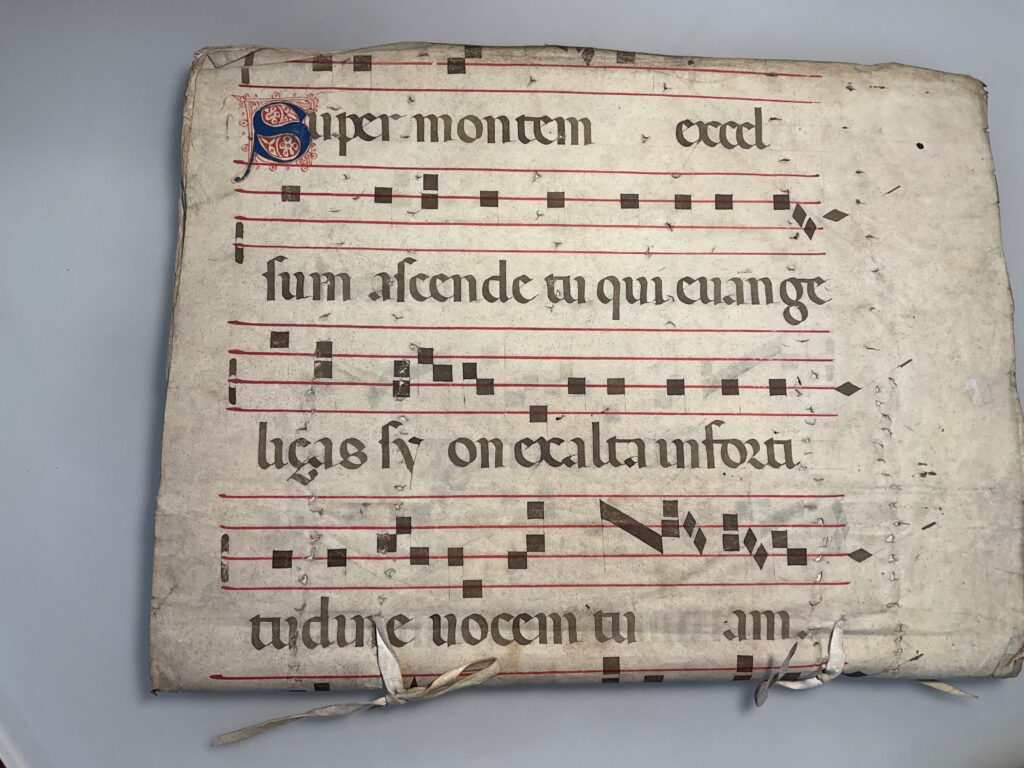 Super montem excel
sum ascende tu qui euange
ligas sy on exalta in forti
tudine uocem tu am.